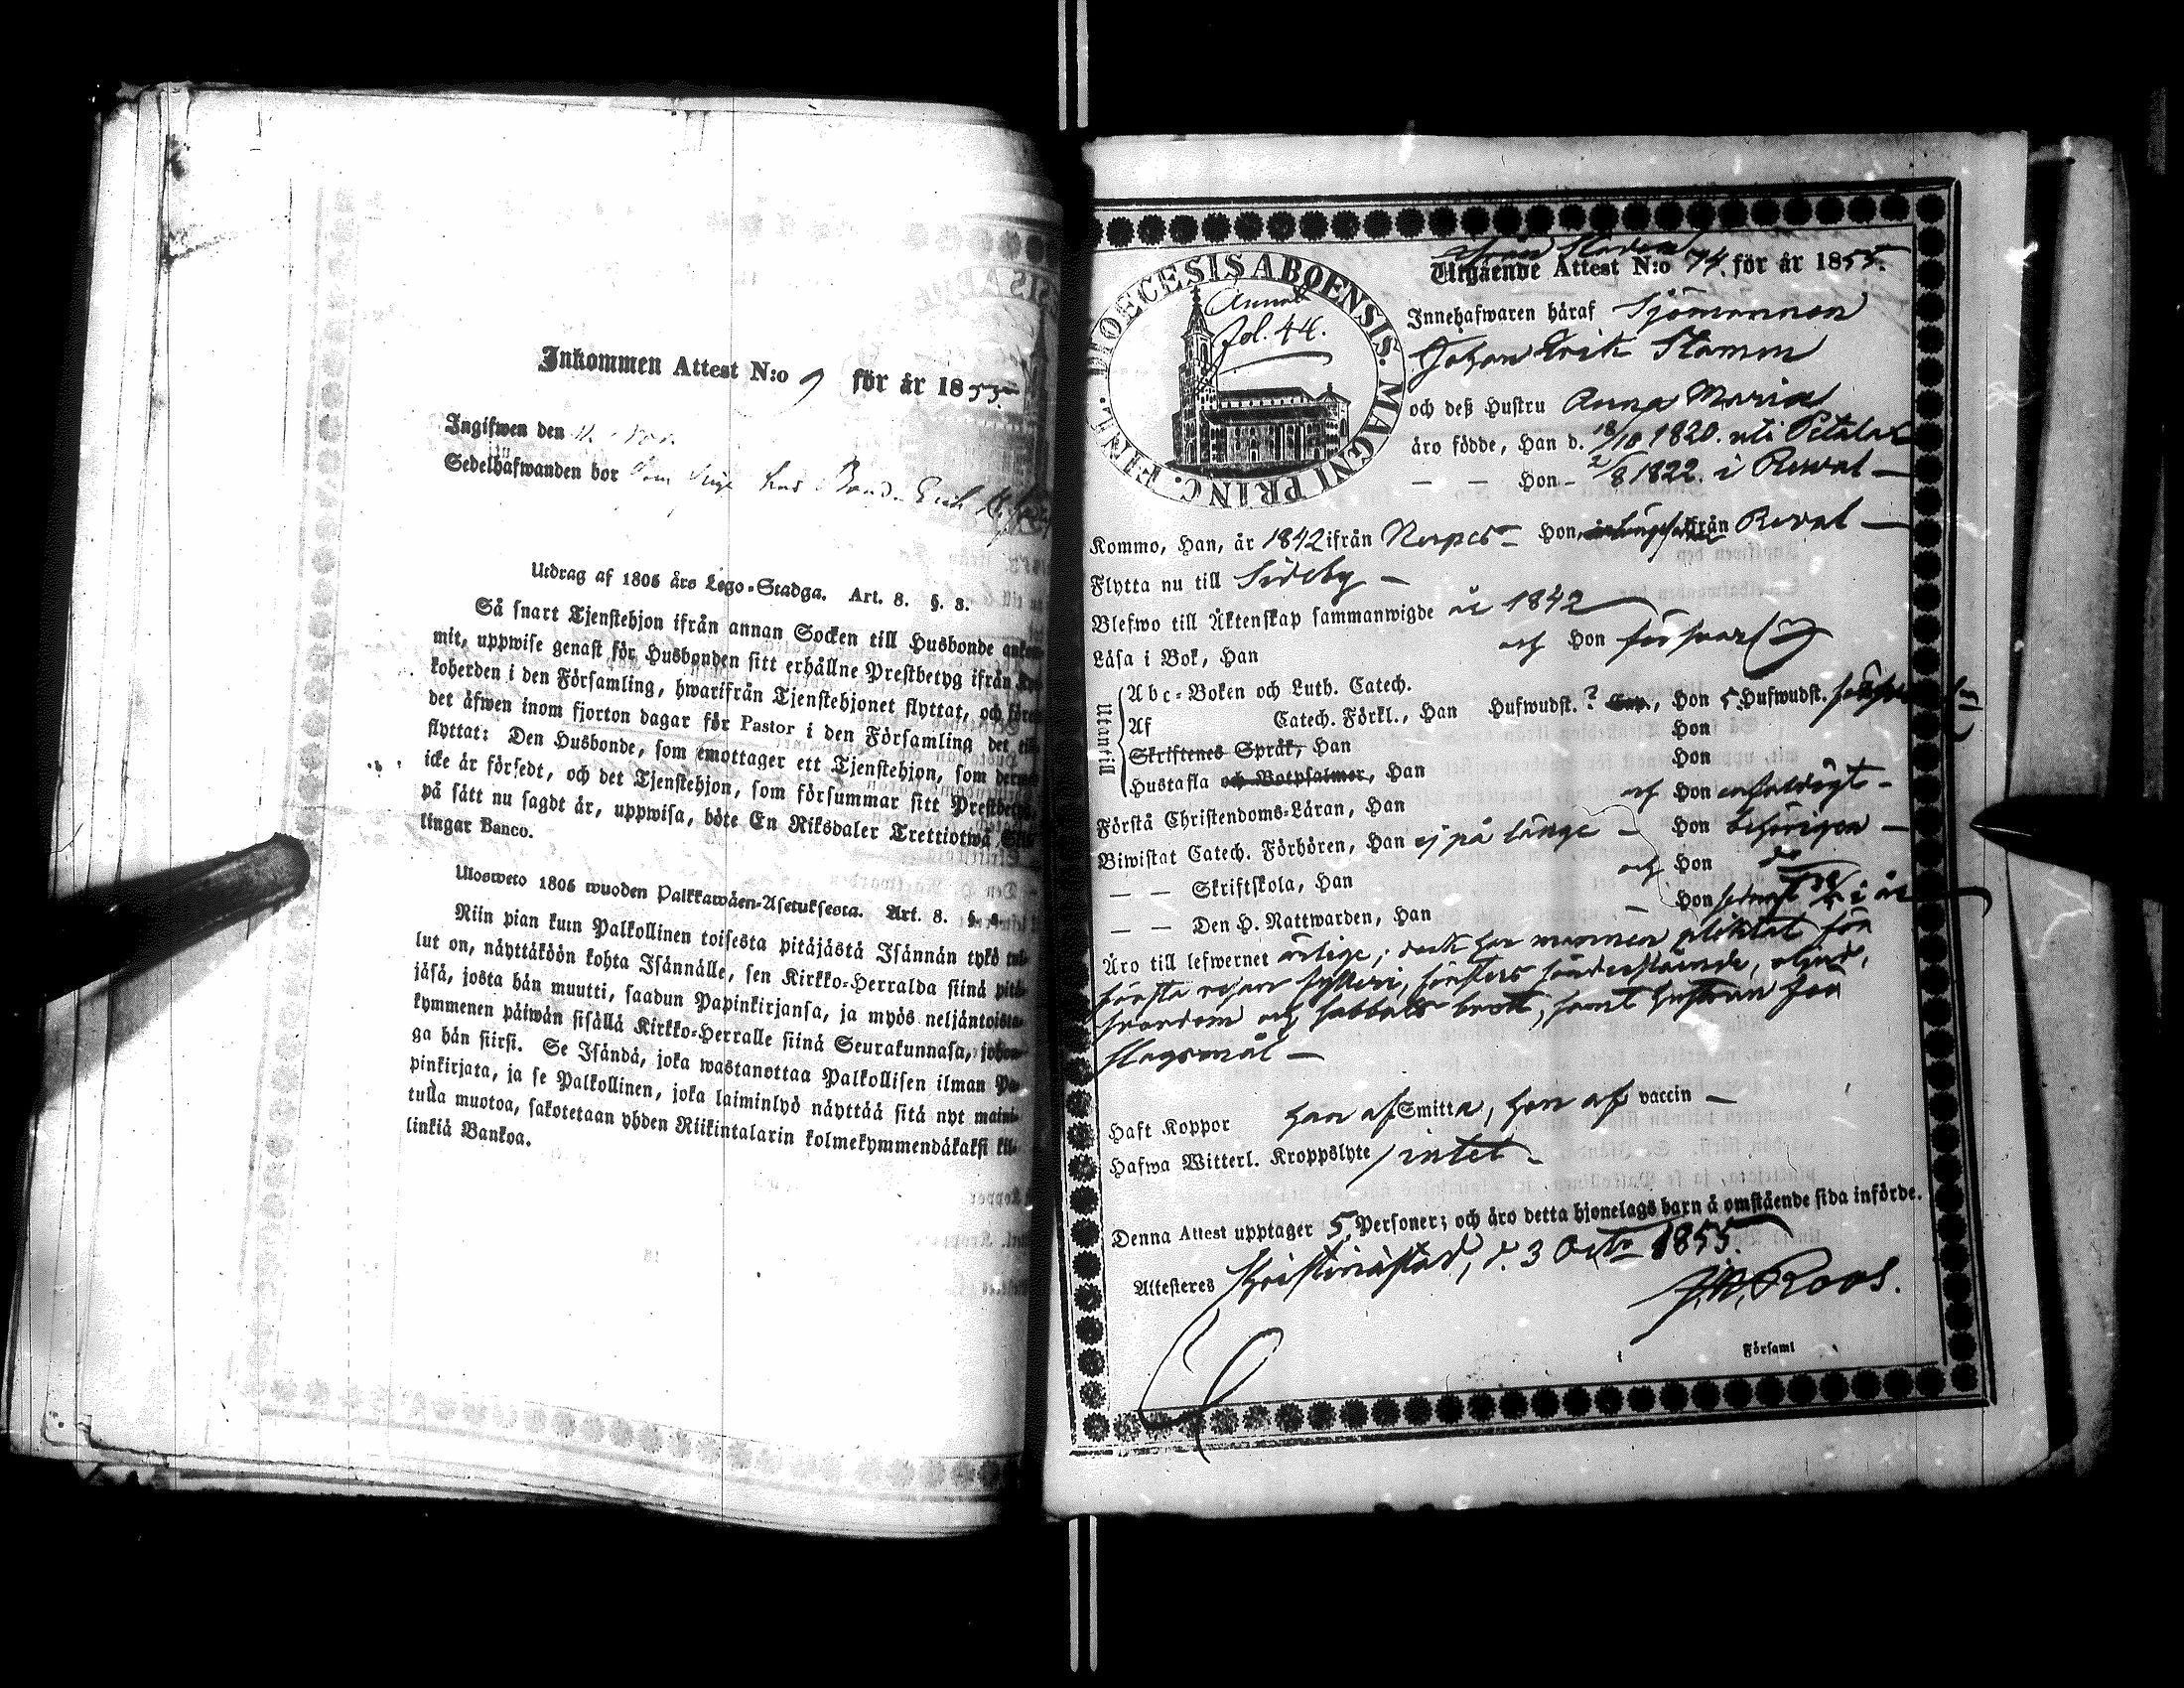 Inkommen Attest N:o 9 för år 1855.
Ingifwen den
Sedelhafwanden bor
Utdrag af 1805 års Lego-Stadga. Art. 8. §. 8.
Så snart Tjenstehjon ifrån annan Socken till Husbonde ankom-
mit, uppwise genast för Husbonden sitt erhållne Prestbetyg ifrån Kyr-
koherden i den Församling, hwarifrån Tjenstehjonet flyttat, och före
det äfwen inom fjorton dagar för Pastor i den Församling det till
flyttat: Den Husbonde, som emottager ett Tjenstehjon, som dermed
icke är försedt, och det Tjenstehjon, som försummar sitt Prestbetyg,
på sätt nu sagdt är, uppwisa, böte En Riksdaler Trettiotwå Skil-
lingar Banco.
Ulosweto 1805 wuoden Palkkawäen-Asetuksesta. Art. 8. §. 8.
Niin pian kuin Palkollinen toisesta pitäjästä Isännän tykö tul-
lut on, näyttäköön kohta Isännälle, sen Kirkko-Herralda siinä pitä-
jäsä, josta hän muutti, saadun Papinkirjansa, ja myös neljäntoista-
kymmenen päiwän sisällä Kirkko-Herralle siinä Seurakunnasa, johon-
ga hän siirsi. Se Isändä, joka wastanottaa Palkollisen ilman Pa-
pinkirjata, ja se Palkollinen, joka laiminlyö näyttää sitä nyt maini-
tulla muotoa, sakotetaan yhden Riikintalarin kolmekymmendäkaksi kil-
linkiä Bankoa.
DIOECESIS ABOENSIS. MAGNI PRINC. FINL.
Fol. 44.
ifrån Staden
Utgående Attest N:o 74. för år 1855.
Innehafwaren häraf Sjömannen
Johan Erik Stamen
och deß Hustru Anna Maria
äro födde, Han d. 18/10 1820. uti Petalax
— — Hon – 2/8 1822. i Rewal —
Kommo, Han, år 1842 ifrån Nerpes – Hon, ifrån Rewal —
Flytta nu till Sideby –
Blefwo till Äktenskap sammanwigde år 1842
Läsa i Bok, Han och Hon försvarl.
Utantill
Abc-Boken och Luth. Catech.
Af Catech. Förkl., Han Hufwudst. ? Cap., Hon 5 Hufwudst.
Skriftenes Språk, Han Hon
Hustafla och Botpsalmer, Han Hon
Förstå Christendoms-Läran, Han och Hon enfaldigt –
Biwistat Catech. Förhören, Han ej på länge – Hon behörigen –
— — Skriftskola, Han och Hon do
— — Den H. Nattwarden, Han — Hon senast i år
Äro till lefwernet ärlige; dock har mannen pliktat för
första resan fylleri, fönsters sönderslående,
svordom och sabbats brott, samt hustrun för
slagsmål –
Haft Koppor han af Smitta, hon af vaccin –
Hafwa Witterl. Kroppslyte intet –
Denna Attest upptager 5 Personer; och äro detta hjonelags barn å omstående sida införde.
Attesteres Kristinæstad, d. 3 Octo 1855.
J. W. Roos.
Församl